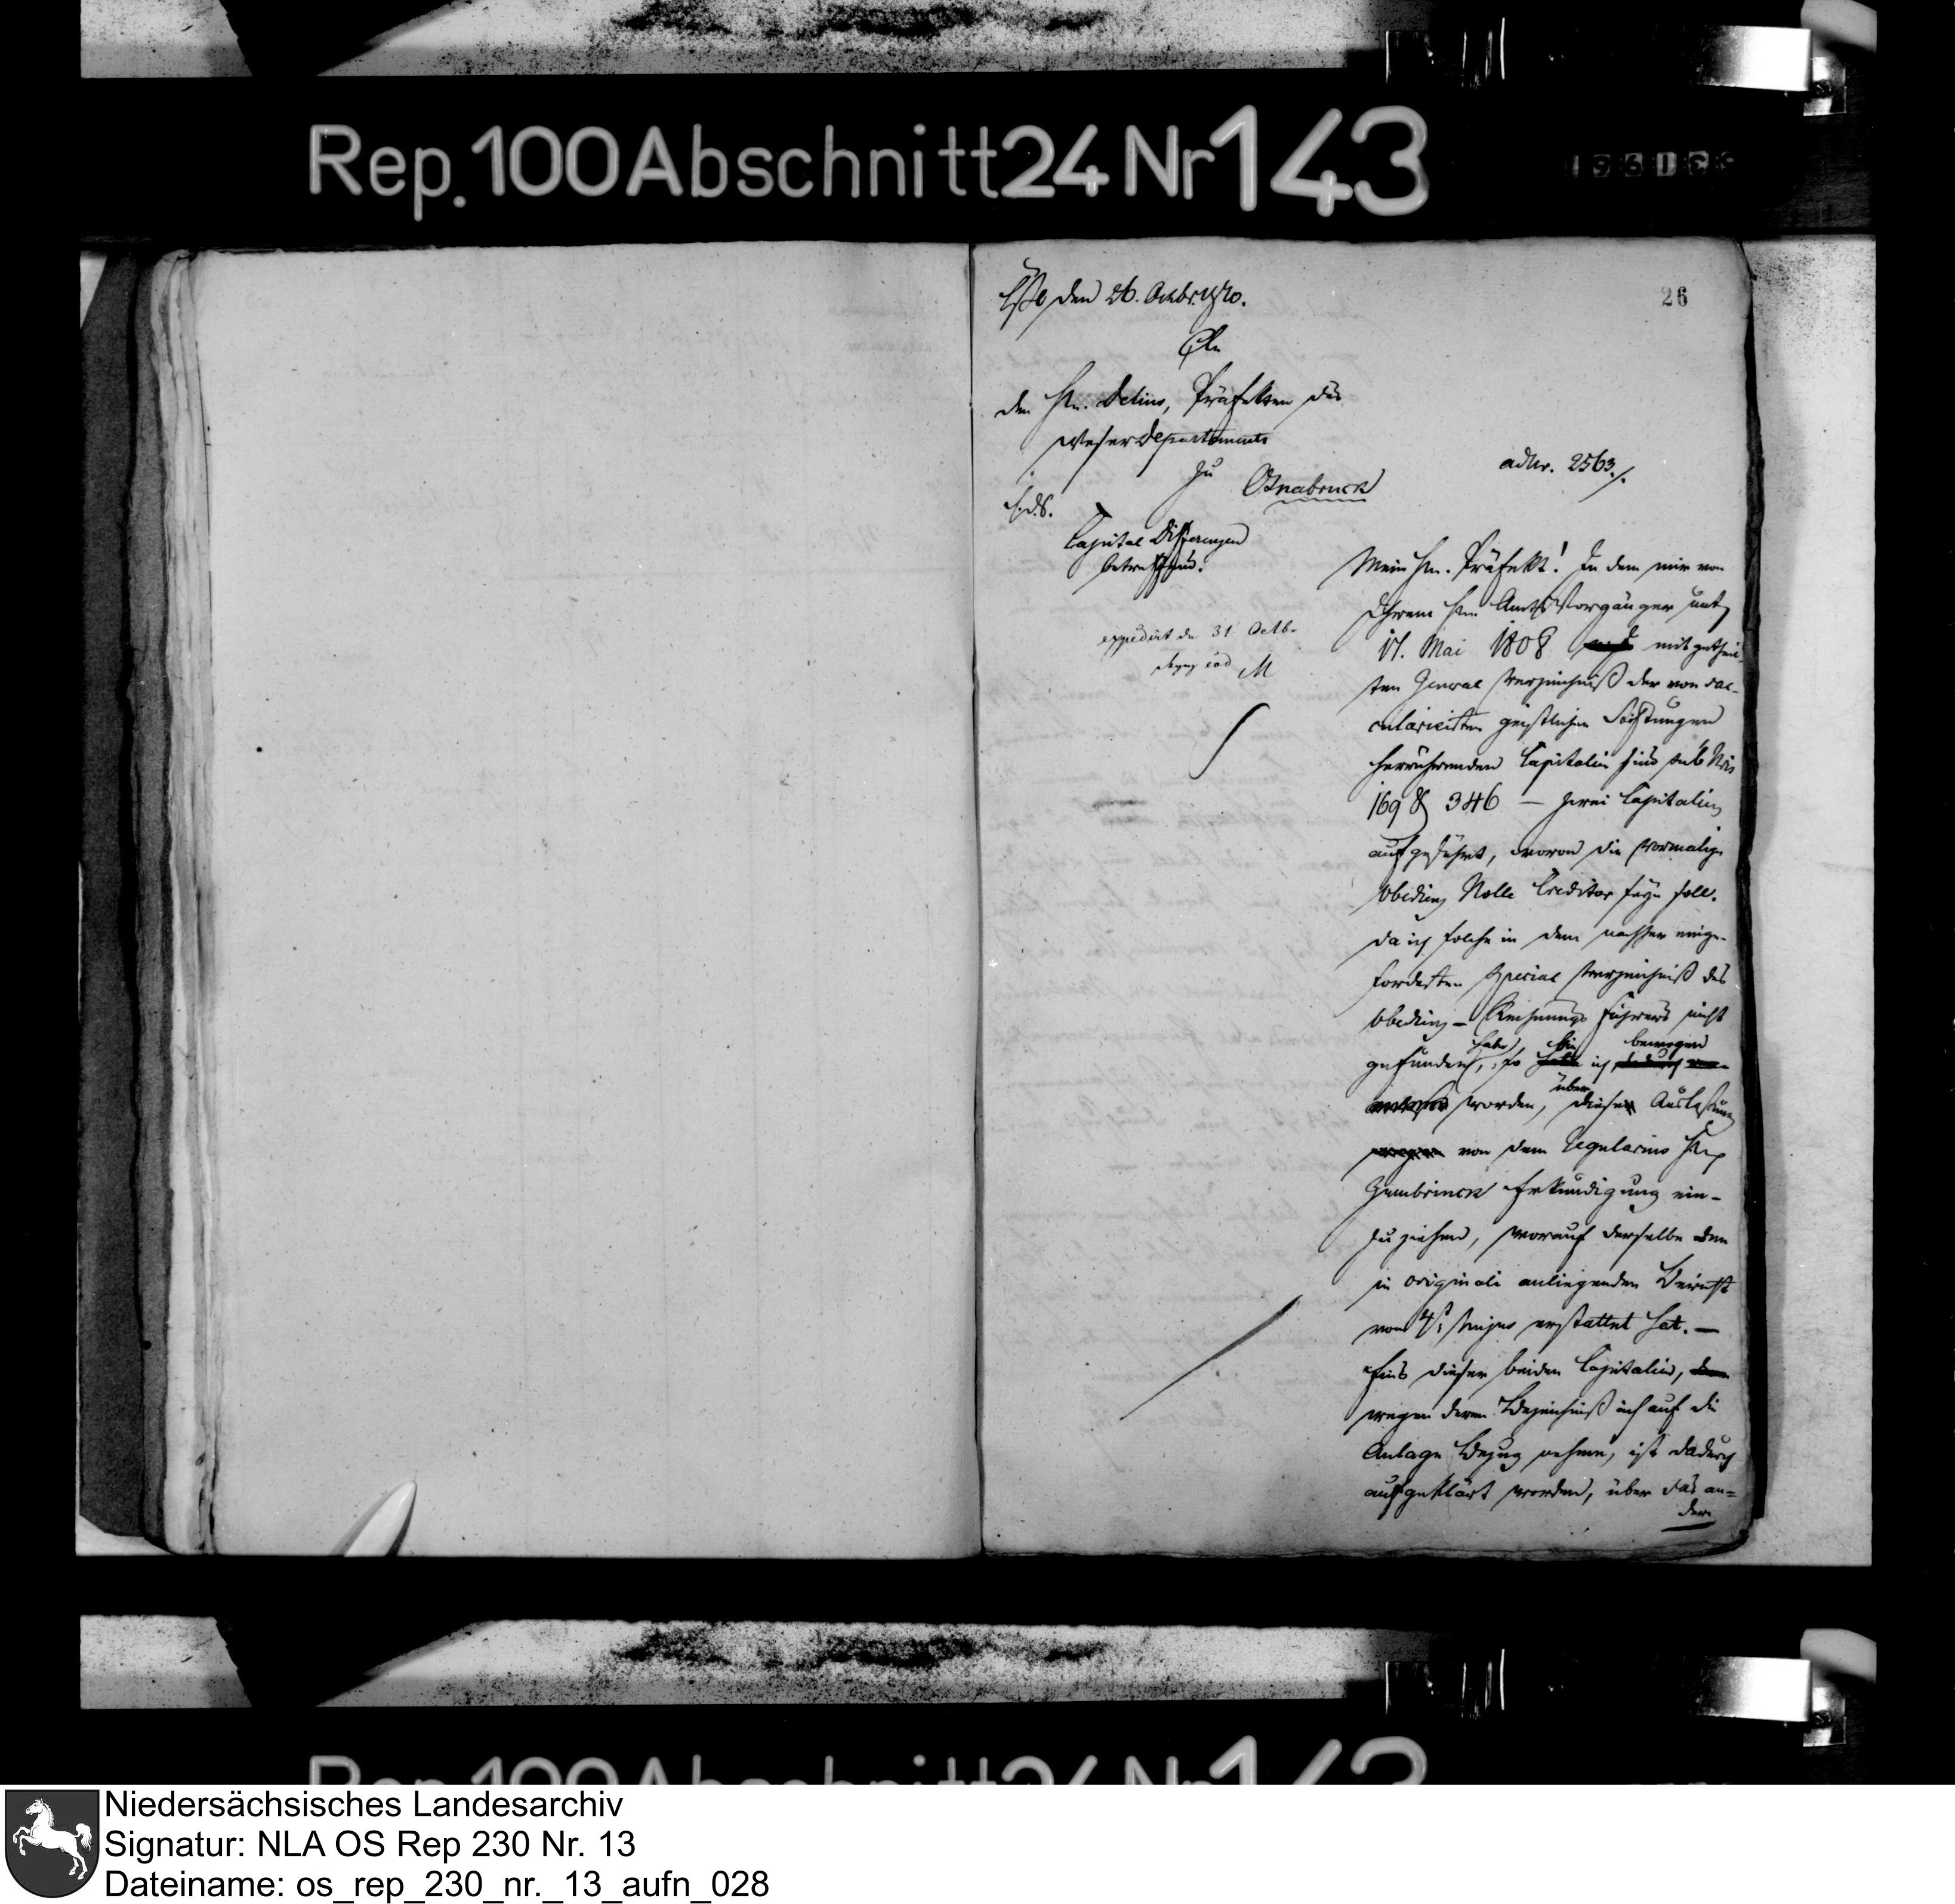 Rep. 100 Abschnitt 24 Nr 143
26
den 26. Octbr. 1810.
An
den Hn. Delius, Präfekten des
Weserdepartements
zu Osnabruck
adNr. 2563./.
Capital Differenzen
betreffend.
expedirt den 31 Octb.
M
Mein Hr. Präfekt! In dem mir von
Ihrem Hn. Amts Vorgänger unt.
17. Mai 1808 mitgethei-
ten General Verzeichniß der von sae-
cularisirten geistlichen Stiftungen
herrührenden Capitalien sind sub Nris
169 & 346 — zwei Capitalien
aufgeführt, wovon die vormalige
Obedienz Nolle Creditor seyn soll.
Da ich solche in dem nachher einge-
forderten Special Verzeichniß des
Obedienz-Rechnungs Führers nicht
gefunden habe, so bin ich bewogen
worden, über diese Auslassung
von dem Regularius Hn.
Gembrinck Erkundigung ein-
zuziehen, worauf derselbe den
in originali anliegenden Bericht
vom erstattet hat. —
Eins dieser beiden Capitalien,
wegen deren Bezeichniß ich auf die
Anlage Bezug nehme, ist dadurch
aufgeklärt worden, über das an-
dere
Niedersächsisches Landesarchiv
Signatur: NLA OS Rep 230 Nr. 13
Dateiname: os_rep_230_nr._13_aufn_028